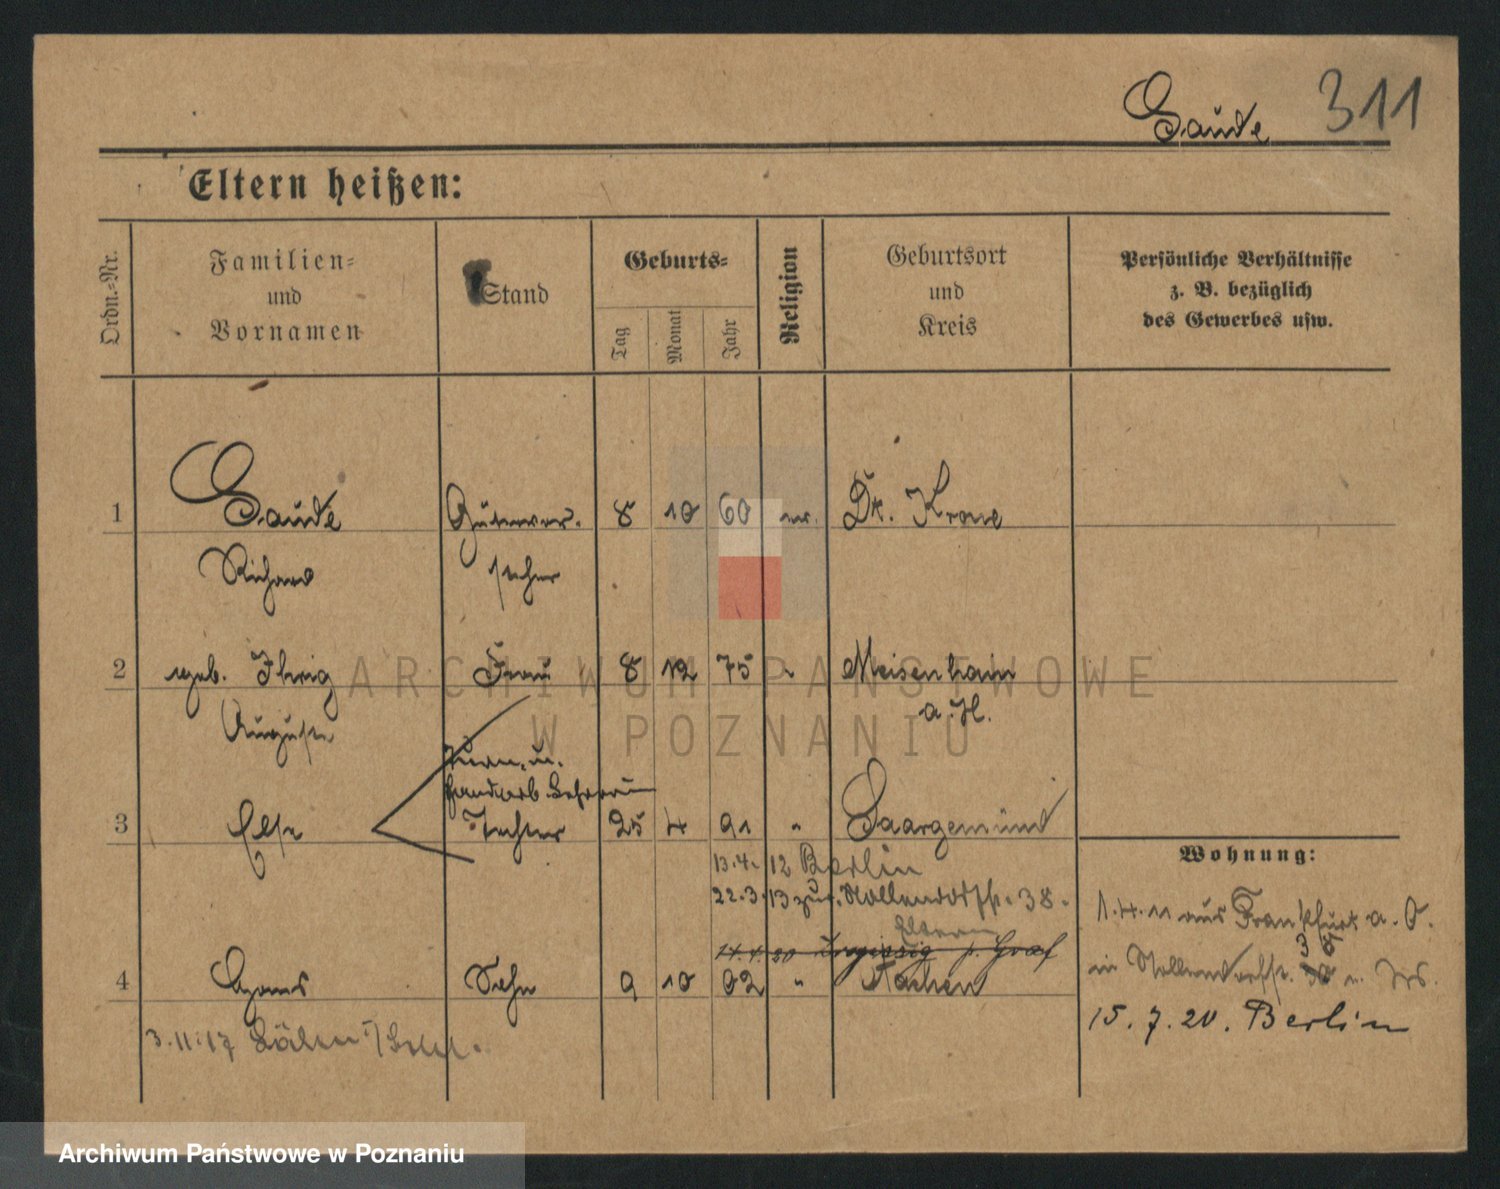 Gaude 311
Eltern heißen:
Ordn.-Nr.
Familien-
und
Vornamen
Stand
Geburts-
Tag
Monat
Jahr
Religion
Geburtsort
und
Kreis
Persönliche Verhältnisse
z. B. bezüglich
des Gewerbes usw.
1 Gaude Gütervor- 8 10 60 ev. Dt. Krone
Richard steher
2 geb. Ihrig Frau 8 12 75 " Meisenheim
Auguste a. Gl.
Turn- u.
Handarb. Lehrerin
3 Else Tochter 25 4 91 " Saargemünd
Wohnung:
13.4. 12 Berlin
22.3.13 zur. Nollendorfstr. 38.
Eltern
1.4.11 aus Frankfurt a. O.
14.4.20 p. Graf
in Nollendorfstr. 38
4 Sohn 9 10 02 " Aachen
15.7.20. Berlin
3.11.17
ARCHIWUM PAŃSTWOWE
W POZNANIU
Archiwum Państwowe w Poznaniu